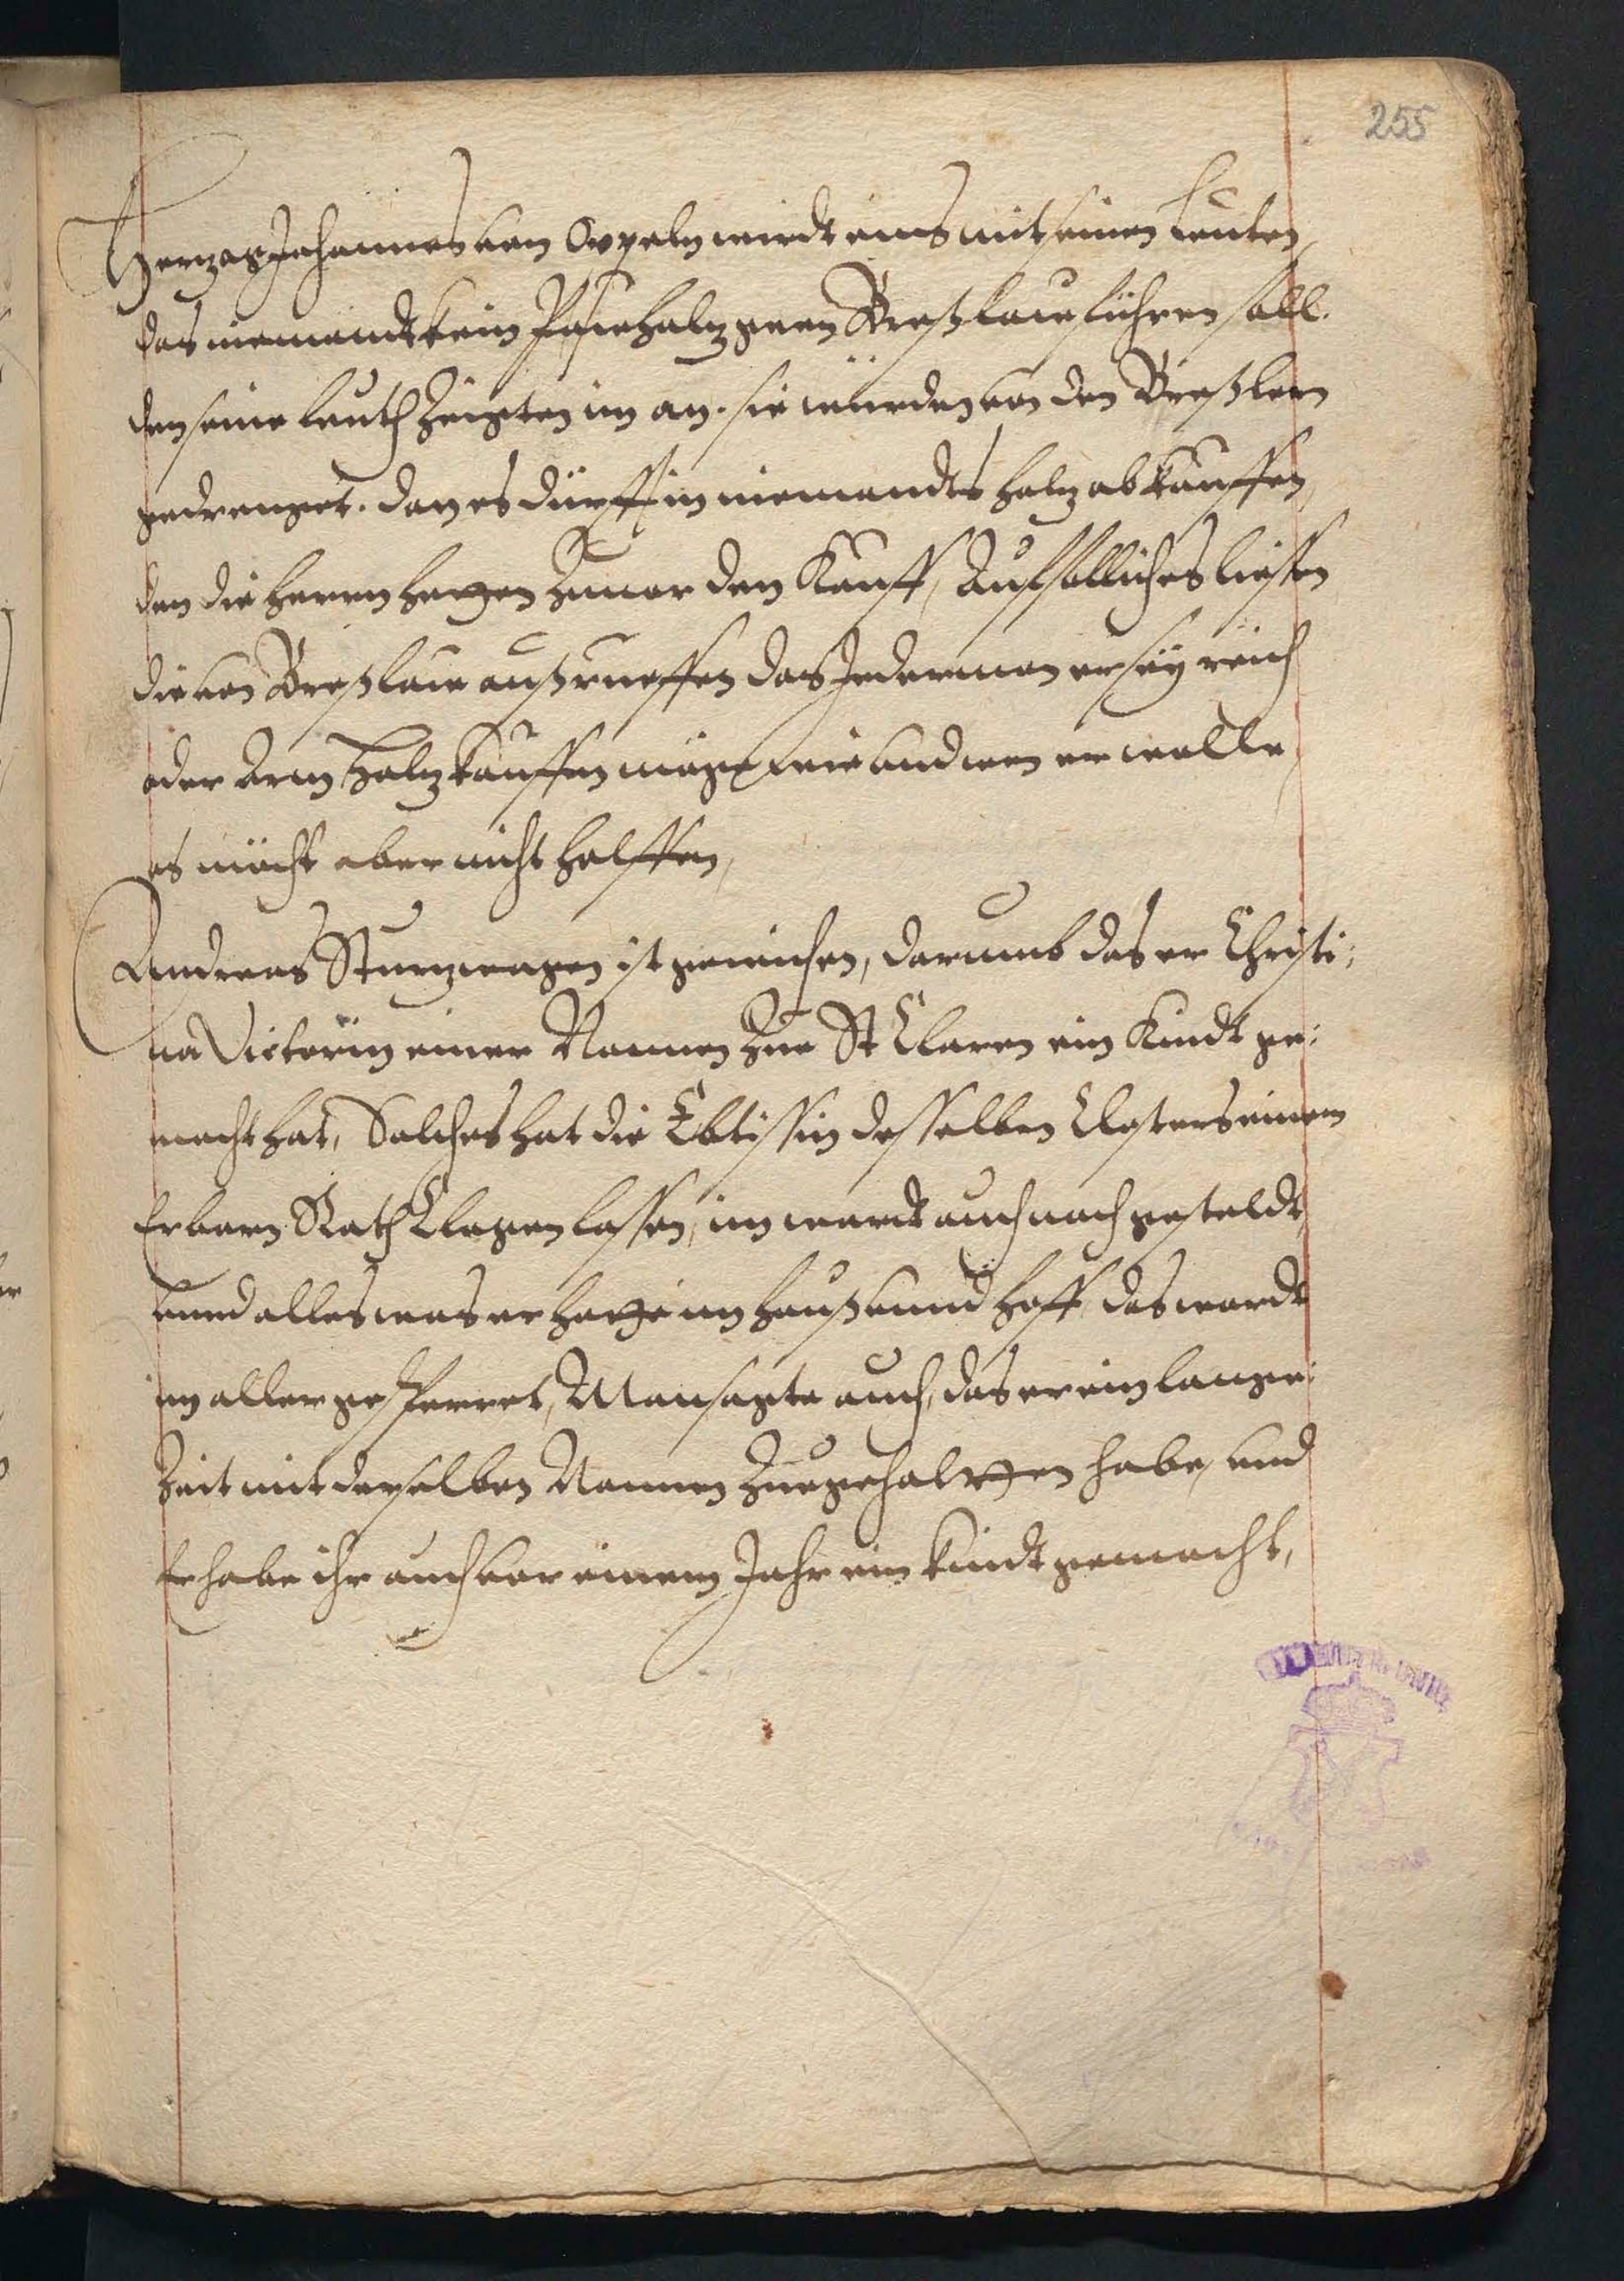 255
Herzog Johannes von Oppeln wirdt eins mit seinen Leuten,
das niemandt kein holz gegen Breßlaw führen soll.
den seine Leuth Zeigten im an. sie würden von den Breßlern
gedrenget. dan es dürff in niemandts holz abkauffen,
den die herren hetten Zuuor den Kauff, Auf solliches liessen
die von Breßlaw außrueffen das Jederman er sey reich
oder Arm Holz kauffen möge wie und wen er wolle
es mocht aber nicht helffen,
Andreas Sturzwagen ist gewichen, darumb das er Christi:
na Victorin einer Nonnen Zue St Claren ein Kindt ge:
macht hat, Solches hat die Ebtissin desselben Closters einem
Erbarn Rath Clagen lassen, im wardt auch nach gesteldt,
unnd alles was er hette im hauß unnd hoff das wardt
im alles gesperret, Man sagte auch, das er ein lange
Zeit mit derselben Nonnen Zuegehaltten habe, und
Er habe ihr auch vor einem Jahr ein kindt gemacht,